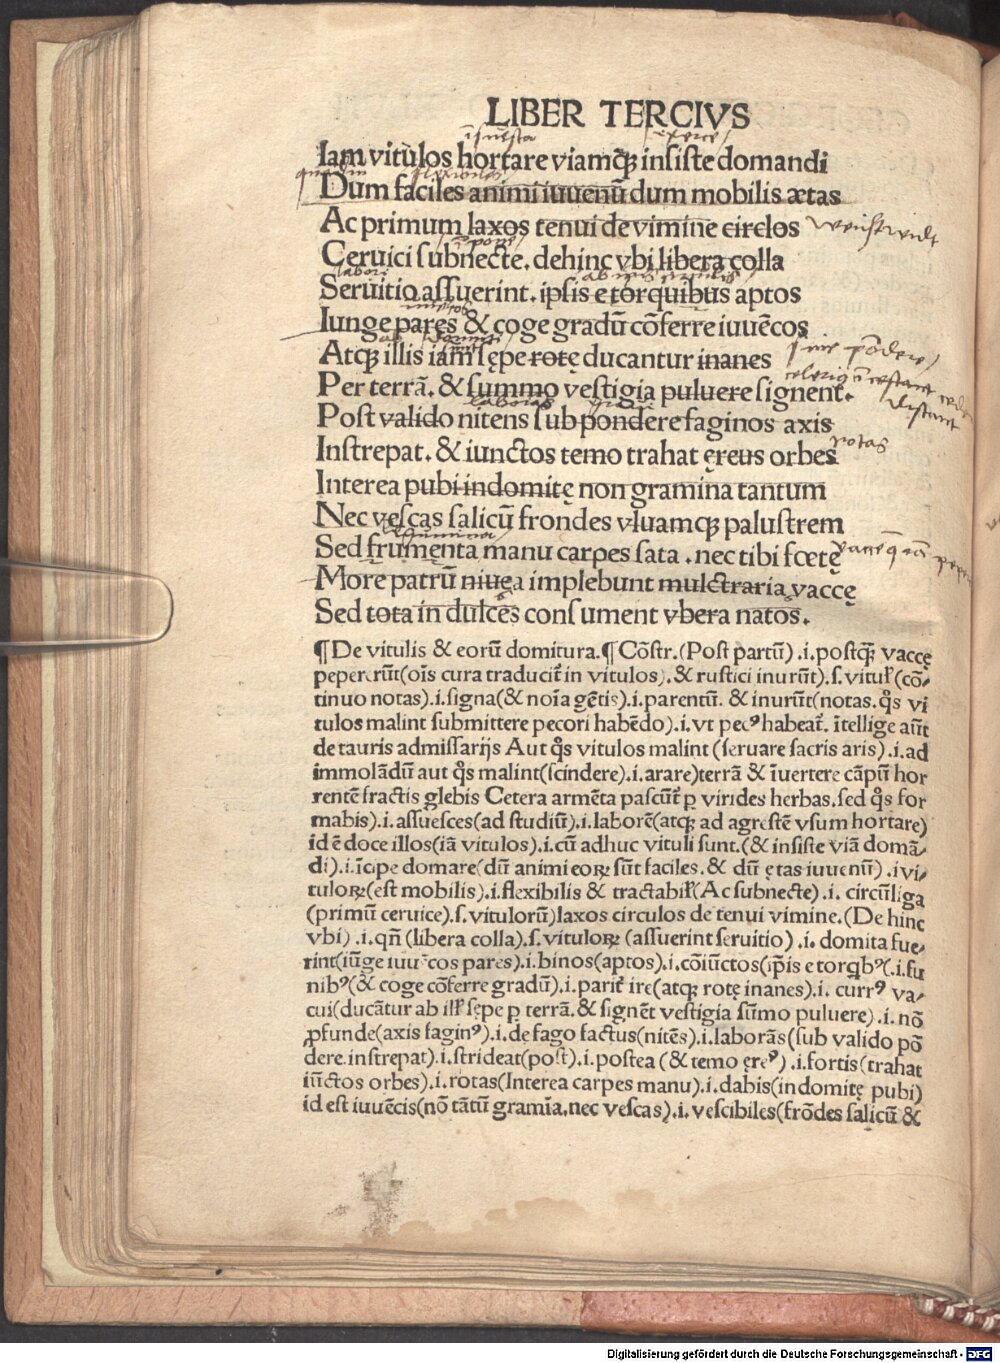 LIBER TERCIVS
Iam vitulos hortare viamqꝫ insiste domandi
Dum faciles animi iuuenū dum mobilis ætas
Ac primum laxos tenui de vimine circlos
Ceruici subnecte. dehinc vbi libera colla
Seruitio assuerint. ipsis e torquibus aptos
Iunge pares & coge gradū cōferre iuuēcos
Atqꝫ illis iam sępe rotę ducantur inanes
Per terrā. & summo vestigia puluere signent.
Post valido nitens sub pondere faginos axis
rotas
Instrepat. & iunctos temo trahat ęreus orbes
Interea pubi indomitę non gramina tantum
Nec vescas salicū frondes vluamqꝫ palustrem
Sed frumenta manu carpes sata . nec tibi fœtę
More patrū niuea implebunt mulctraria vaccę
Sed tota in dulces consument vbera natos.
¶ De vitulis & eorū domitura. ¶ Cōstr. (Post partū) .i. postqꝫ vaccę
pepererūt(oīs cura traducit̃ in vitulos). & rustici inurūt). s. vitul̃ (cō⸗
tinuo notas).i. signa(& noīa gētis).i. parentū. & inurūt(notas. q̄s vi
tulos malint submittere pecori habēdo).i. vt pecꝰ habeat̃. ītellige aūt
de tauris admissarijs Aut q̄s vitulos malint (seruare sacris aris) .i. ad
immolādū aut q̄s malint(scindere).i. arare)terrā & īuertere cāpū hor
rentē fractis glebis Cetera armēta pascūt̃ ꝑ virides herbas. sed q̄s for
mabis).i. assuesces(ad studiū).i. laborē(atqꝫ ad agrestē vsum hortare)
id ē doce illos(iā vitulos).i. cū adhuc vituli sunt. (& insiste viā domā⸗
di).i. īcipe domare(dū animi eoꝝ sūt faciles. & dū ętas iuuenū) .i vi⸗
tuloꝝ(est mobilis).i. flexibilis & tractabil̃(Ac subnecte) .i. circūliga
(primū ceruice). s. vitulorū)laxos circulos de tenui vimine. (De hinc
vbi) .i. qn̄ (libera colla). s. vituloꝝ (assuerint seruitio) .i. domita fue⸗
rint(iūge iuuēcos pares).i. binos(aptos).i. cōiūctos(ip̄is e torq̄bꝰ(.i. fu
nibꝰ(& coge cōferre gradū).i. parit̃ ire(atqꝫ rotę inanes).i. currꝰ va⸗
cui(ducātur ab ill̃ sępe ꝑ terrā. & signēt vestigia sūmo puluere) .i. nō
ꝓfunde(axis faginꝰ).i. de fago factus(nitēs).i. laborās(sub valido pō
dere instrepat).i. strideat(post).i. postea (& temo ęreꝰ) .i. fortis(trahat
iūctos orbes).i. rotas(Interea carpes manu).i. dabis(indomitę pubi)
id est iuuēcis(nō tātū gramīa. nec vescas).i. vescibiles(frōdes salicū &
Digitalisierung gefördert durch die Deutsche Forschungsgemeinschaft - DFG